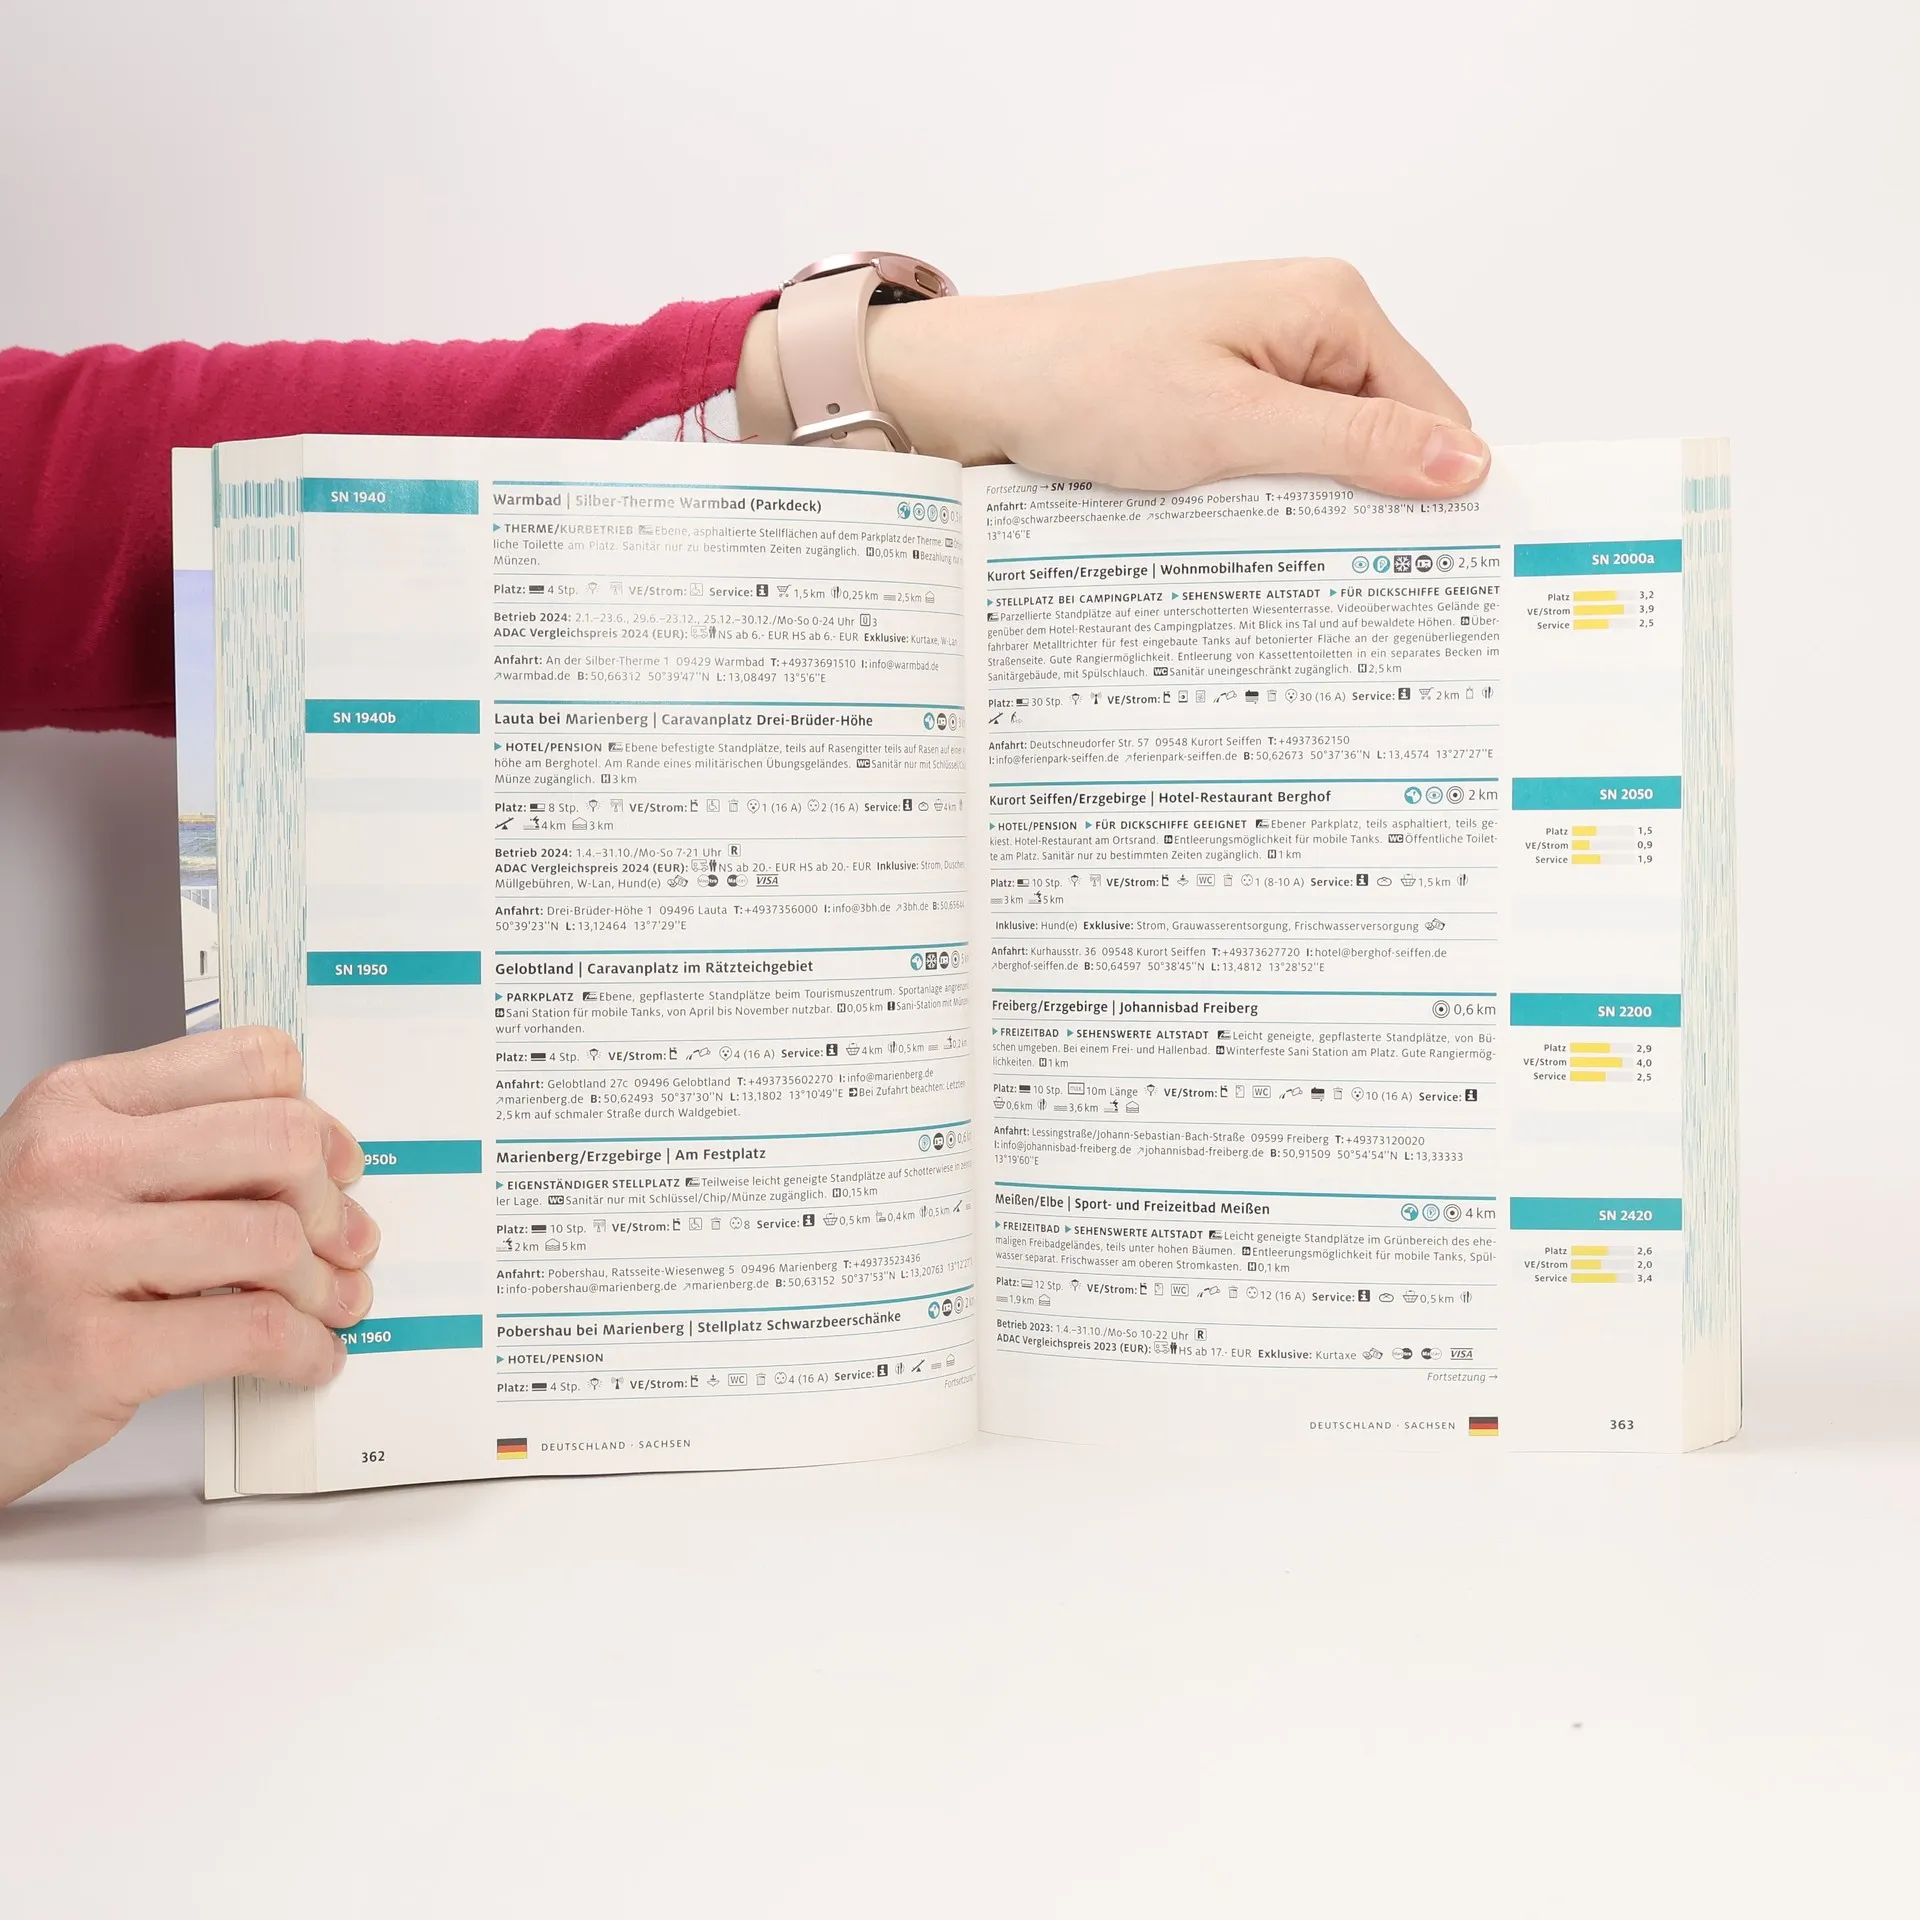 SN 1940
Warmbad | Silber-Therme Warmbad (Parkdeck)
THERME/KURBETRIEB Ebene, asphaltierte Stellflächen auf dem Parkplatz der Therme.
liche Toilette am Platz. Sanitär nur zu bestimmten Zeiten zugänglich. 0,05 km Bezahlung nur
Münzen.
Platz: 4 Stp. VE/Strom: Service: 1,5 km 0,25 km 2,5 km
Betrieb 2024: 2.1.–23.6., 29.6.–23.12., 25.12.–30.12./Mo-So 0-24 Uhr Ü 3
ADAC Vergleichspreis 2024 (EUR): NS ab 6.- EUR HS ab 6.- EUR Exklusive: Kurtaxe, W-Lan
Anfahrt: An der Silber-Therme 1 09429 Warmbad T:+49373691510 I:info@warmbad.de
↗warmbad.de B:50,66312 50°39'47''N L:13,08497 13°5'6''E
SN 1940b
Lauta bei Marienberg | Caravanplatz Drei-Brüder-Höhe
HOTEL/PENSION Ebene befestigte Standplätze, teils auf Rasengitter teils auf Rasen auf einer
höhe am Berghotel. Am Rande eines militärischen Übungsgeländes. WC Sanitär nur mit
Münze zugänglich. H 3 km
Platz: 8 Stp. VE/Strom: 1 (16 A) 2 (16 A) Service: 4 km
4 km 3 km
Betrieb 2024: 1.4.–31.10./Mo-So 7-21 Uhr R
ADAC Vergleichspreis 2024 (EUR): NS ab 20.- EUR HS ab 20.- EUR Inklusive: Strom, Duschen,
Müllgebühren, W-Lan, Hund(e) VISA
Anfahrt: Drei-Brüder-Höhe 1 09496 Lauta T:+4937356000 I:info@3bh.de ↗3bh.de B:
50°39'23''N L:13,12464 13°7'29''E
SN 1950
Gelobtland | Caravanplatz im Rätzteichgebiet
PARKPLATZ Ebene, gepflasterte Standplätze beim Tourismuszentrum. Sportanlage
Sani Station für mobile Tanks, von April bis November nutzbar. H 0,05 km Sani-Station mit
wurf vorhanden.
Platz: 4 Stp. VE/Strom: 4 (16 A) Service: 4 km 0,5 km 0,2 km
Anfahrt: Gelobtland 27c 09496 Gelobtland T:+493735602270 I:info@marienberg.de
↗marienberg.de B:50,62493 50°37'30''N L:13,1802 13°10'49''E Bei Zufahrt beachten: Letzten
2,5 km auf schmaler Straße durch Waldgebiet.
950b
Marienberg/Erzgebirge | Am Festplatz
EIGENSTÄNDIGER STELLPLATZ Teilweise leicht geneigte Standplätze auf Schotterwiese in
ler Lage. WC Sanitär nur mit Schlüssel/Chip/Münze zugänglich. H 0,15 km
Platz: 10 Stp. VE/Strom: 8 Service: 0,5 km 0,4 km 0,5 km
2 km 5 km
Anfahrt: Pobershau, Ratsseite-Wiesenweg 5 09496 Marienberg T:+49373523436
I:info-pobershau@marienberg.de ↗marienberg.de B:50,63152 50°37'53''N L:13,20763
SN 1960
Pobershau bei Marienberg | Stellplatz Schwarzbeerschänke
HOTEL/PENSION
Platz: 4 Stp. VE/Strom: WC 4 (16 A) Service:
Fortsetzung
362
DEUTSCHLAND · SACHSEN
Fortsetzung → SN 1960
Anfahrt: Amtsseite-Hinterer Grund 2 09496 Pobershau T:+49373591910
I:info@schwarzbeerschaenke.de ↗schwarzbeerschaenke.de B:50,64392 50°38'38''N L:13,23503
13°14'6''E
SN 2000a
Kurort Seiffen/Erzgebirge | Wohnmobilhafen Seiffen 2,5 km
STELLPLATZ BEI CAMPINGPLATZ SEHENSWERTE ALTSTADT FÜR DICKSCHIFFE GEEIGNET
Parzellierte Standplätze auf einer unterschotterten Wiesenterrasse. Videoüberwachtes Gelände ge-
genüber dem Hotel-Restaurant des Campingplatzes. Mit Blick ins Tal und auf bewaldete Höhen. Über-
fahrbarer Metalltrichter für fest eingebaute Tanks auf betonierter Fläche an der gegenüberliegenden
Straßenseite. Gute Rangiermöglichkeit. Entleerung von Kassettentoiletten in ein separates Becken im
Sanitärgebäude, mit Spülschlauch. WC Sanitär uneingeschränkt zugänglich. H 2,5 km
Platz 3,2
VE/Strom 3,9
Service 2,5
Platz: 30 Stp. VE/Strom: 30 (16 A) Service: 2 km
Anfahrt: Deutschneudorfer Str. 57 09548 Kurort Seiffen T:+4937362150
I:info@ferienpark-seiffen.de ↗ferienpark-seiffen.de B:50,62673 50°37'36''N L:13,4574 13°27'27''E
SN 2050
Kurort Seiffen/Erzgebirge | Hotel-Restaurant Berghof 2 km
HOTEL/PENSION FÜR DICKSCHIFFE GEEIGNET Ebener Parkplatz, teils asphaltiert, teils ge-
kiest. Hotel-Restaurant am Ortsrand. Entleerungsmöglichkeit für mobile Tanks. WC Öffentliche Toilet-
te am Platz. Sanitär nur zu bestimmten Zeiten zugänglich. H 1 km
Platz 1,5
VE/Strom 0,9
Service 1,9
Platz: 10 Stp. VE/Strom: WC 1 (8-10 A) Service: 1,5 km
3 km 5 km
Inklusive: Hund(e) Exklusive: Strom, Grauwasserentsorgung, Frischwasserversorgung
Anfahrt: Kurhausstr. 36 09548 Kurort Seiffen T:+49373627720 I:hotel@berghof-seiffen.de
↗berghof-seiffen.de B:50,64597 50°38'45''N L:13,4812 13°28'52''E
SN 2200
Freiberg/Erzgebirge | Johannisbad Freiberg 0,6 km
FREIZEITBAD SEHENSWERTE ALTSTADT Leicht geneigte, gepflasterte Standplätze, von Bü-
schen umgeben. Bei einem Frei- und Hallenbad. Winterfeste Sani Station am Platz. Gute Rangiermög-
lichkeiten. H 1 km
Platz 2,9
VE/Strom 4,0
Service 2,5
Platz: 10 Stp. max 10m Länge VE/Strom: WC 10 (16 A) Service:
0,6 km 3,6 km
Anfahrt: Lessingstraße/Johann-Sebastian-Bach-Straße 09599 Freiberg T:+49373120020
I:info@johannisbad-freiberg.de ↗johannisbad-freiberg.de B:50,91509 50°54'54''N L:13,33333
13°19'60''E
SN 2420
Meißen/Elbe | Sport- und Freizeitbad Meißen 4 km
FREIZEITBAD SEHENSWERTE ALTSTADT Leicht geneigte Standplätze im Grünbereich des ehe-
maligen Freibadgeländes, teils unter hohen Bäumen. Entleerungsmöglichkeit für mobile Tanks, Spül-
wasser separat. Frischwasser am oberen Stromkasten. H 0,1 km
Platz 2,6
VE/Strom 2,0
Service 3,4
Platz: 12 Stp. VE/Strom: WC 12 (16 A) Service: 0,5 km
1,9 km
Betrieb 2023: 1.4.–31.10./Mo-So 10-22 Uhr R
ADAC Vergleichspreis 2023 (EUR): HS ab 17.- EUR Exklusive: Kurtaxe VISA
Fortsetzung →
DEUTSCHLAND · SACHSEN
363